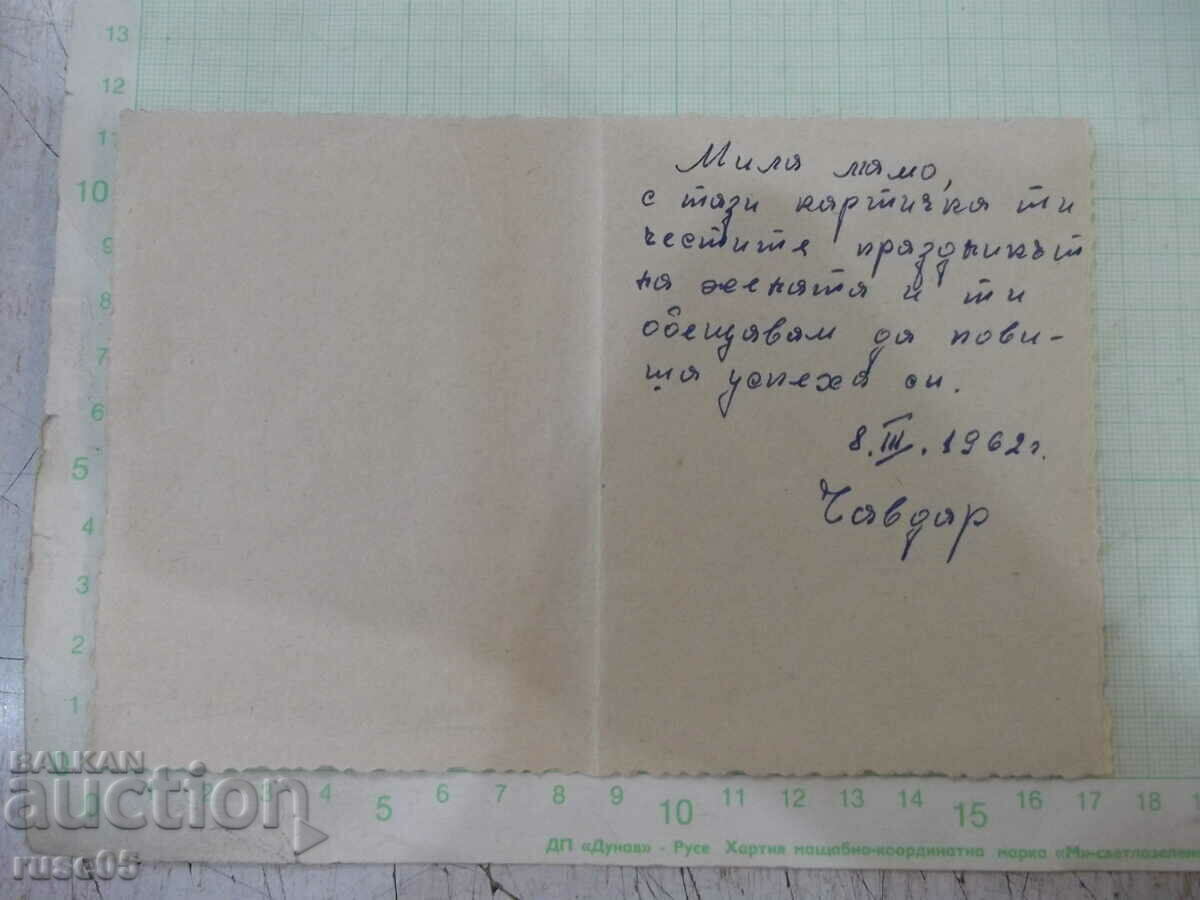 13
12
11
10
9
8
7
6
5
4
3
2
1
0
Мила мамо,
с тази картичка ти
честитя празникът
на жената и ти
обещавам да пови-
ша успеха си.
8.III.1962г.
Чавдар
0 1 2 3 4 5 6 7 8 9 10 11 12 13 14 15 16 17 18
ДП «Дунав» - Русе Хартия мащабно-координатна марка «Ми-светлозелен
BALKAN
auction
ruse05